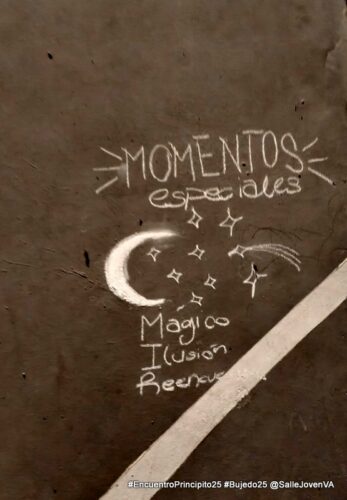 MOMENTOS
especiales
Mágico
Ilusión
#EncuentroPrincipito25 #Bujedo25 @SalleJovenVA